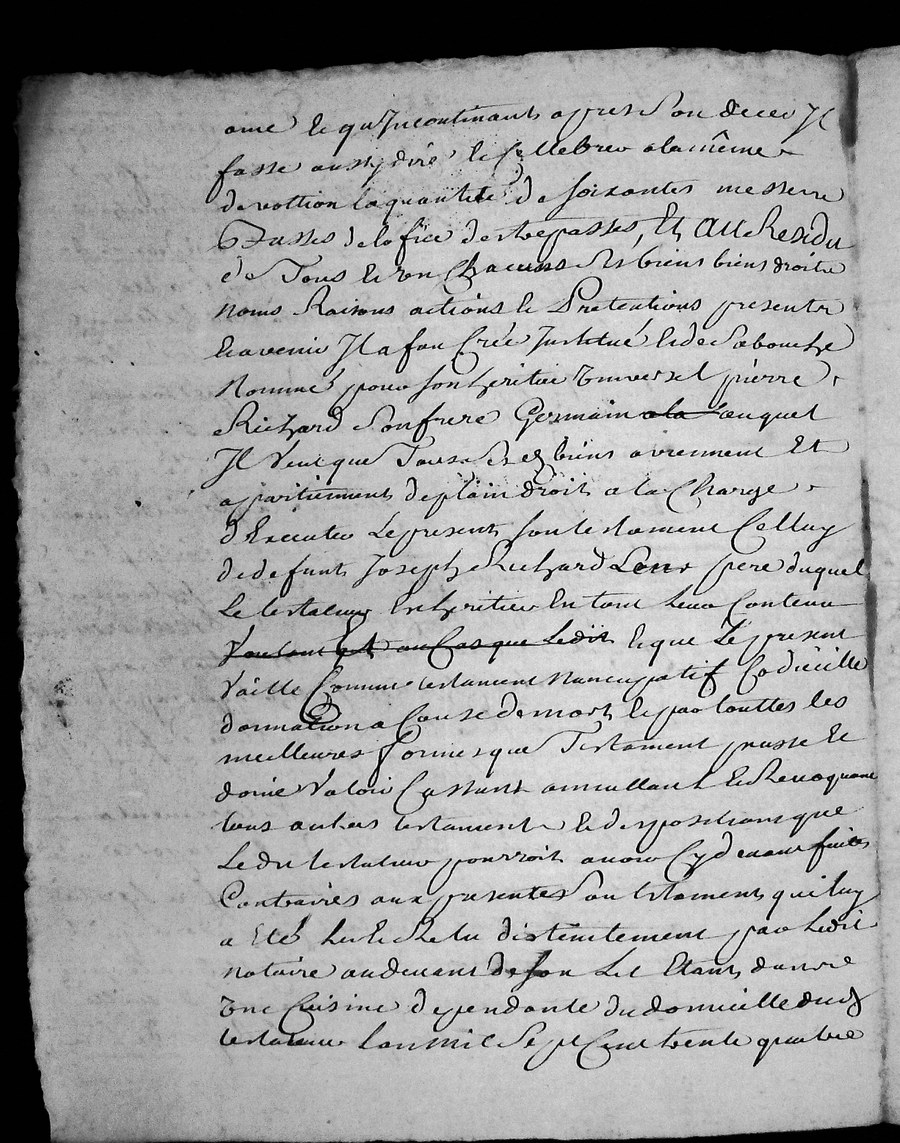 ame et qu'Incontinant apres son deces Jl
fasse aussy dire et Cellebrer a la même
devottion la quantité de soixantes messes
Basses de lofice des trepasses, Et Au Residu
de Tous et un Chacuns ses biens biens droits
noms Raisons actions et Pretentions presents
Et avenir Jl a fait Crée Jnstitué et de sa bouche
Nommé pour son heritier universel pierre
Richard son frere Germain a la Lauquel
Jl Veut que Tous ses biens aviennent Et
apartiennent de plain droit a la Charge
d'Executer Le present son testament Celluy
de defunt Joseph Richard Leur pere duquel
Le testateur Est heritier En tout leur Contenu
Voulant Et au Cas que Ledit et que Le present
Vaille Comme testament nuncupatif Codicille
donnation a Cause de mort et par touttes les
meilleures formes que Testament puisse et
doive Valoir Cassant annullant Et Revoquant
tous autres testament et dispositions que
Ledit testateur pourroit avoir Cydevant faites
Contraires aux presentes son testament qui luy
a Eté Lu et Relu distinctement par Ledit
notaire au devant de son Lit Etant dans
une Cuisine dependante du domicille dudt
testateur Lan mil Sept Cent trente quatre